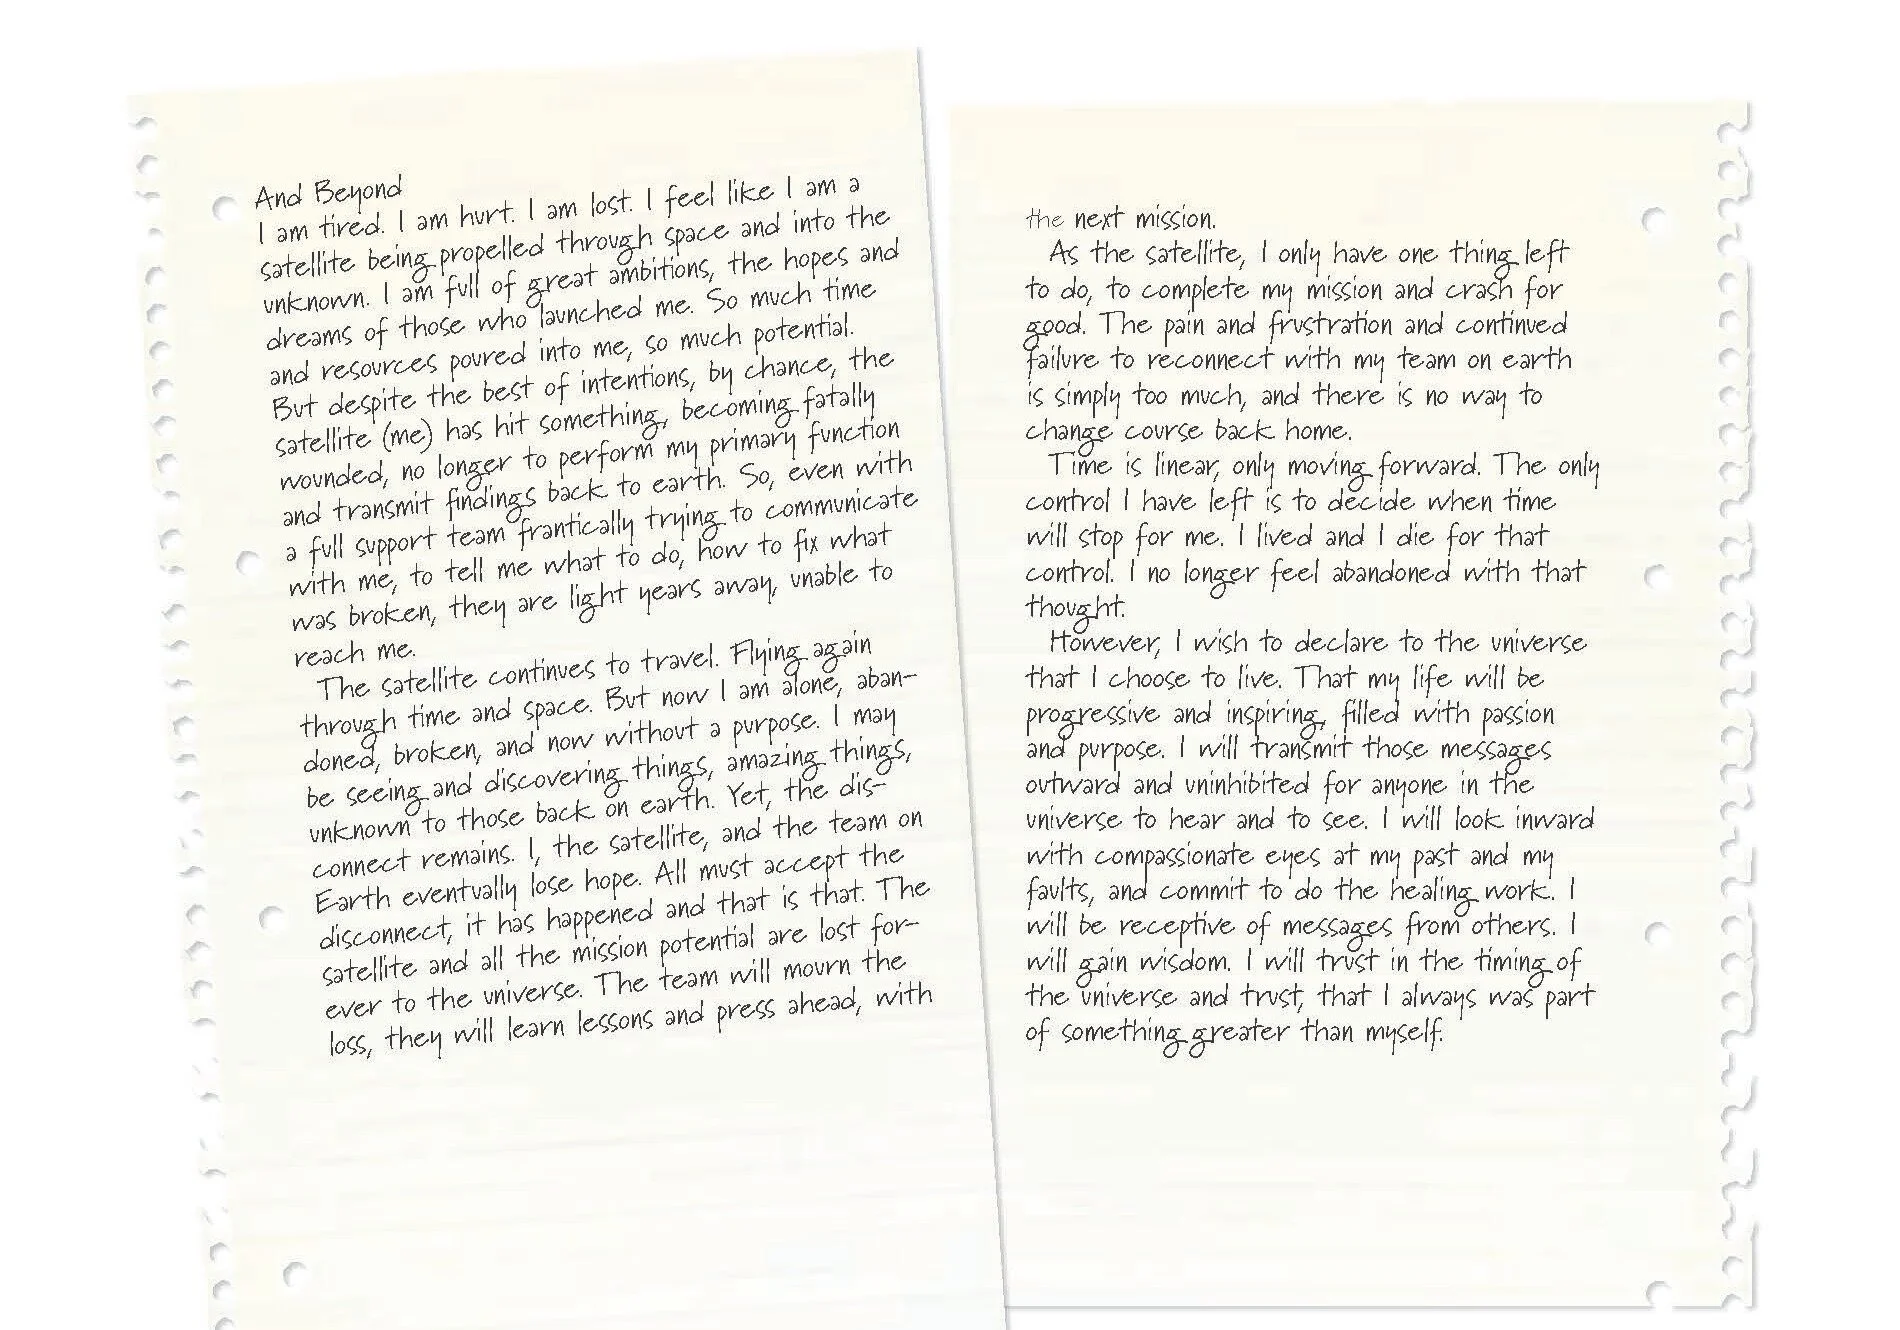 And Beyond
I am tired. I am hurt. I am lost. I feel like I am a
satellite being propelled through space and into the
unknown. I am full of great ambitions, the hopes and
dreams of those who launched me. So much time
and resources poured into me, so much potential.
But despite the best of intentions, by chance, the
satellite (me) has hit something, becoming fatally
wounded, no longer to perform my primary function
and transmit findings back to earth. So, even with
a full support team frantically trying to communicate
with me, to tell me what to do, how to fix what
was broken, they are light years away, unable to
reach me.
The satellite continues to travel. Flying again
through time and space. But now I am alone, aban-
doned, broken, and now without a purpose. I may
be seeing and discovering things, amazing things,
unknown to those back on earth. Yet, the dis-
connect remains. I, the satellite, and the team on
Earth eventually lose hope. All must accept the
disconnect, it has happened and that is that. The
satellite and all the mission potential are lost for-
ever to the universe. The team will mourn the
loss, they will learn lessons and press ahead, with
the next mission.
As the satellite, I only have one thing left
to do, to complete my mission and crash for
good. The pain and frustration and continued
failure to reconnect with my team on earth
is simply too much, and there is no way to
change course back home.
Time is linear, only moving forward. The only
control I have left is to decide when time
will stop for me. I lived and I die for that
control. I no longer feel abandoned with that
thought.
However, I wish to declare to the universe
that I choose to live. That my life will be
progressive and inspiring, filled with passion
and purpose. I will transmit those messages
outward and uninhibited for anyone in the
universe to hear and to see. I will look inward
with compassionate eyes at my past and my
faults, and commit to do the healing work. I
will be receptive of messages from others. I
will gain wisdom. I will trust in the timing of
the universe and trust, that I always was part
of something greater than myself.